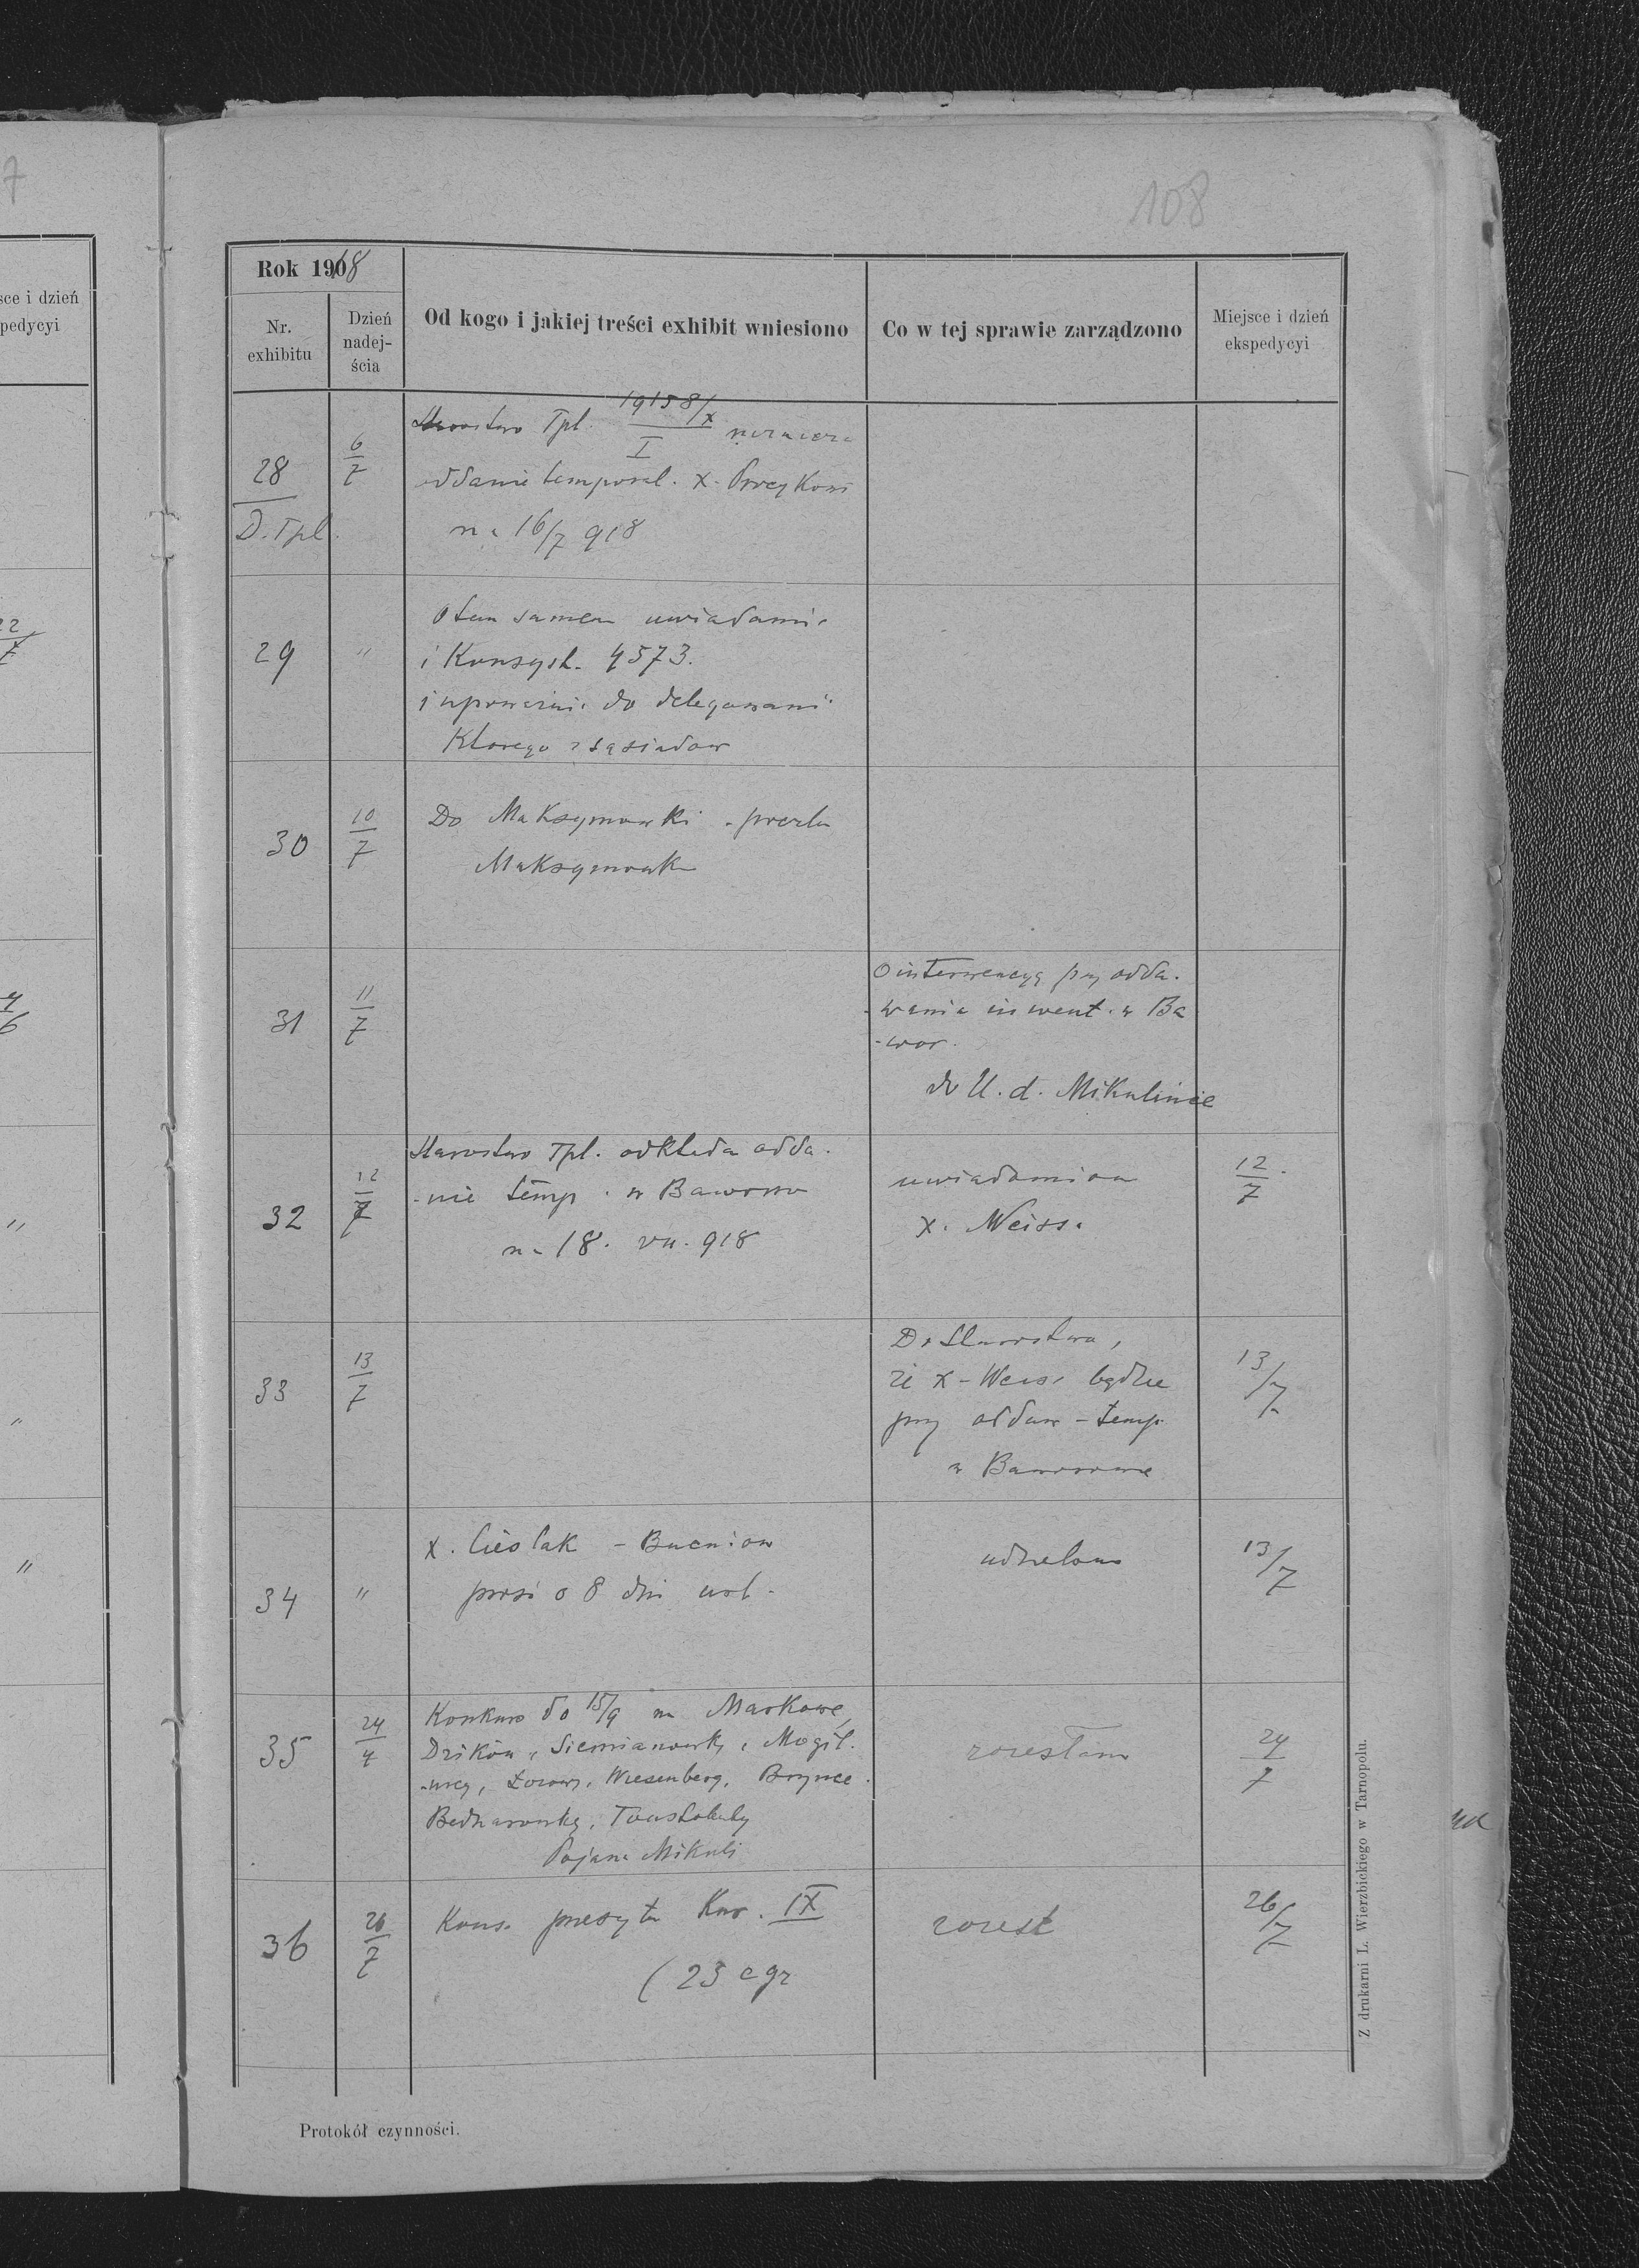 7
108
sce i dzień
pedycyi
22/7
"
"
"
Rok 1918
Nr. exhibitu
Dzień nadej-ścia
Od kogo i jakiej treści exhibit wniesiono
Co w tej sprawie zarządzono
Miejsce i dzień ekspedycyi
28
D. Tpl.
6/7
Starostwo Tpl. 19158/X I
oddanie temporal. X.
na 16/7 918
29
"
O tem samem uwiadamia
i Konsyst. 4573.
i upoważnia do delegowania
Ktorego z sąsiadow
30
10/7
Do Maksymowki
Maksymowk
31
11/7
O interwencyę przy odda-
-wania inwent. w Ba
-wor.
do U. d. Mikulinie
32
12/7
Starostwo Tpl. odkłada odda-
-nie temp. w Baworow
na 18. VII. 918
uwiadomion
X. Weiss.
12/7
33
13/7
Do Starostwa,
że X. Weiss będzie
przy oddaw. temp.
w Baworowie
13/7
34
"
X. Cieślak - Bucniow
prosi o 8 dni url.
udzielono
13/7
35
24/7
Konkurs do 15/9 na Markowę,
Dzików, Siemianowkę, Mogil-
-nicę, Wiesenberg, Brynce
Bednarowkę, Toustobaby
Pojana Mikuli
rozesłano
24/7
36
26/7
Kons. przesyła Kur. IX
(23 egz
rozesł
26/7
Protokół czynności.
Z drukarni L. Wierzbickiego w Tarnopolu.